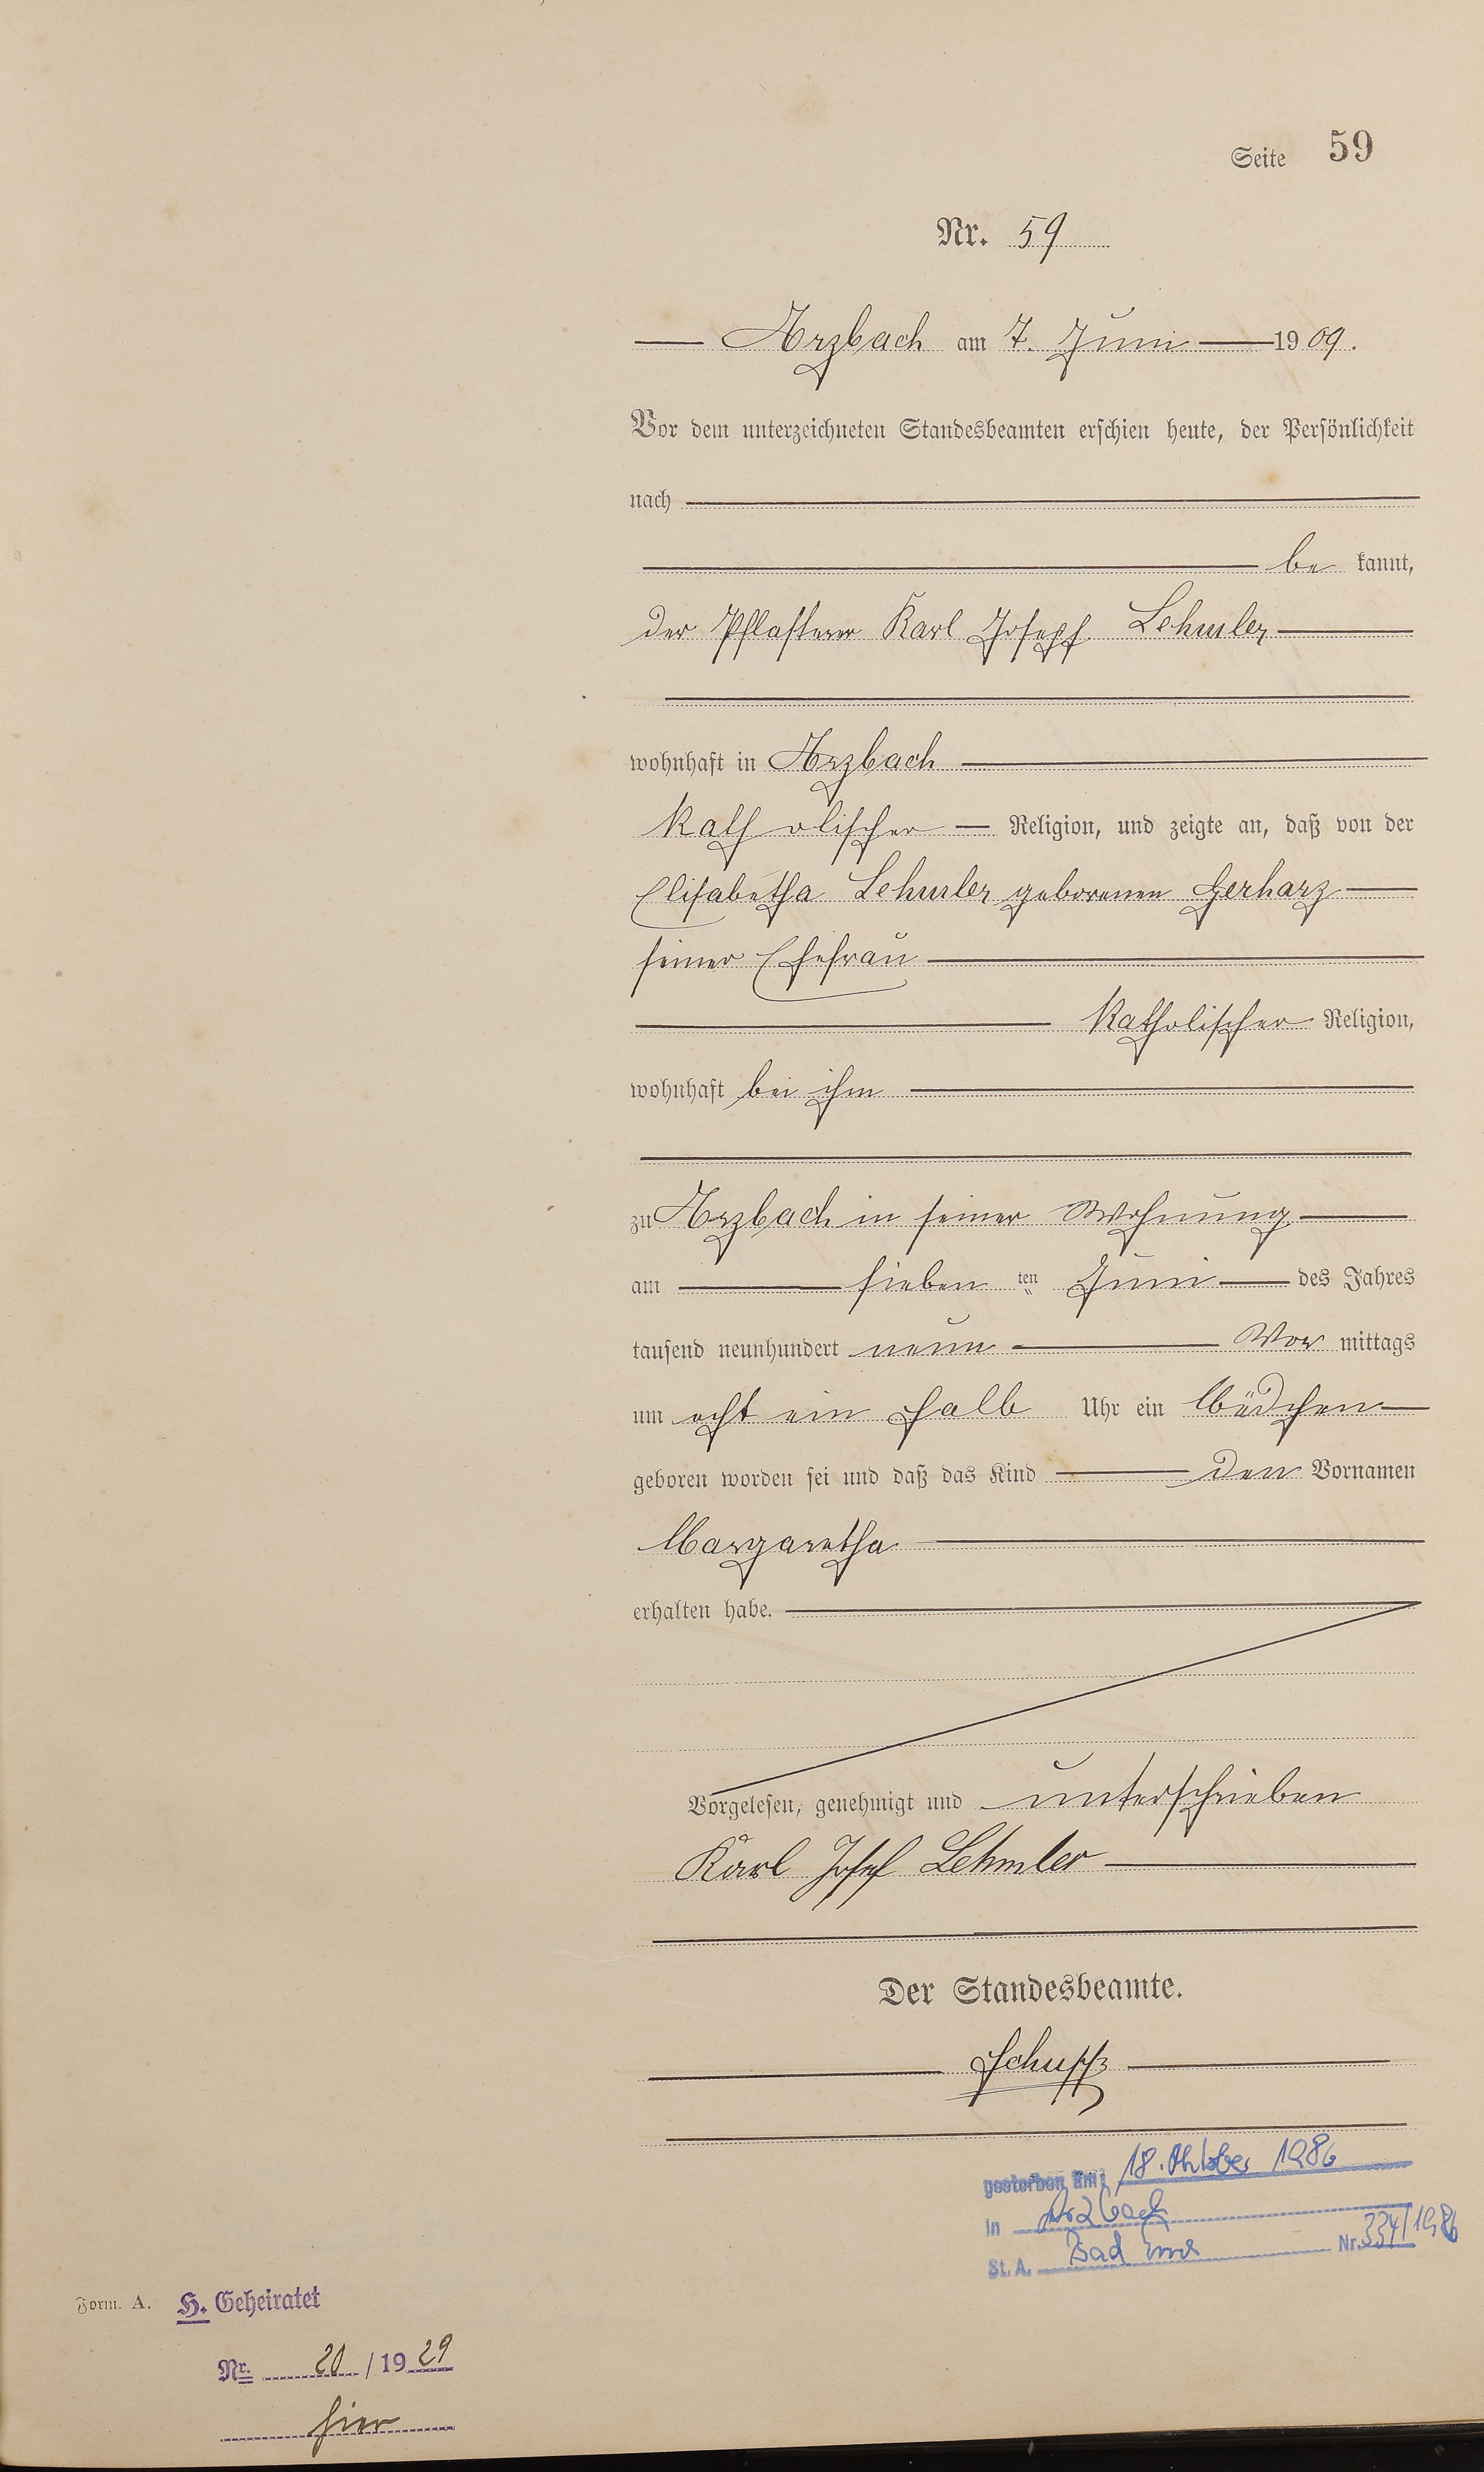 Seite 59
Nr. 59
Arzbach am 7. Juni 1909.
Vor dem unterzeichneten Standesbeamten erschien heute, der Persönlichkeit
nach
bekannt,
der Pflasterer Karl Josepf Lehmler
wohnhaft in Arzbach
katholischer Religion, und zeigte an, daß von der
Elisabetha Lehmler geborenen Gerharz
seiner Ehefrau
katholischer Religion,
wohnhaft bei ihm
zu Arzbach in seiner Wohnung
am sieben ten Juni des Jahres
tausend neunhundert neun Vor mittags
um acht ein halb Uhr ein Mädchen
geboren worden sei und daß das Kind den Vornamen
Margaretha
erhalten habe.
Vorgelesen, genehmigt und unterschrieben
Karl Josef Lehmler
Der Standesbeamte.
gestorben am: 18. Oktober 1986
in Arzbach
St. A. Bad Ems Nr. 334/1986
Form. A. H. Geheiratet
Nr. 20 / 1929
hier